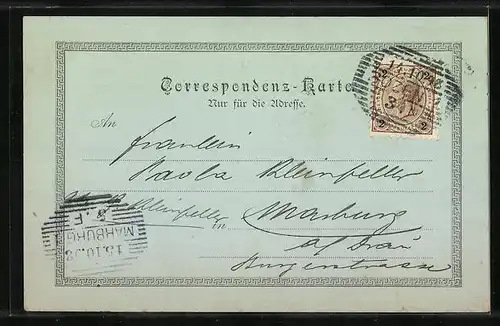 Correspondenz-Karte
Nur für die Adresse.
An
Fräulein
Paola Kleinfeller
Kleinfeller
in Marburg
a/ Drau
Burgerstrasse
2 2
MARBURG
13.10.98